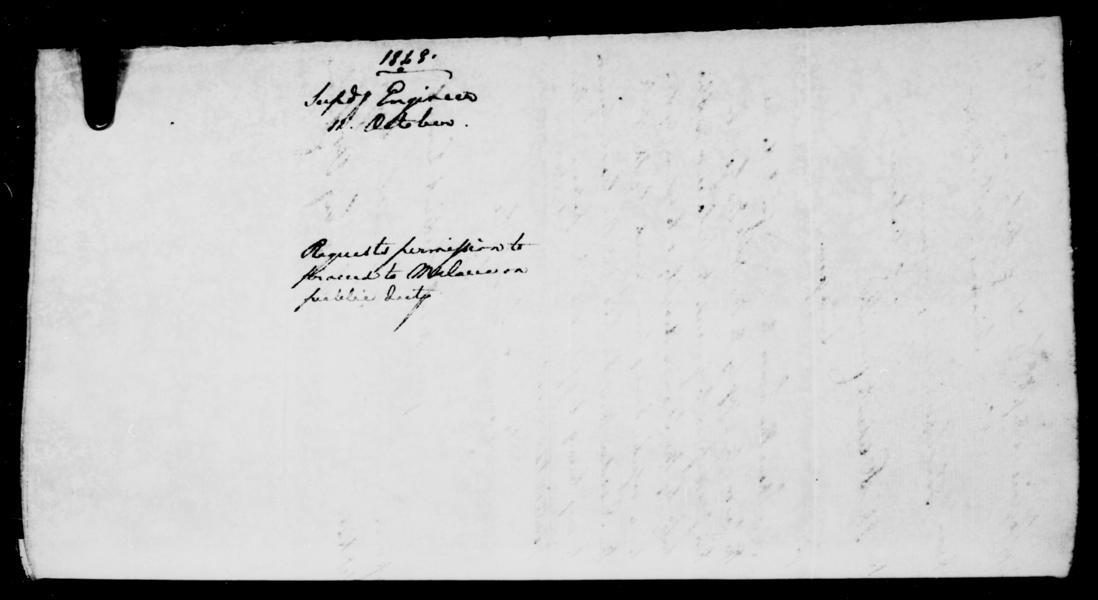 1868.
Supdg Engineer
12. October.
Requests permission to
proceed to Malacca on
public duty